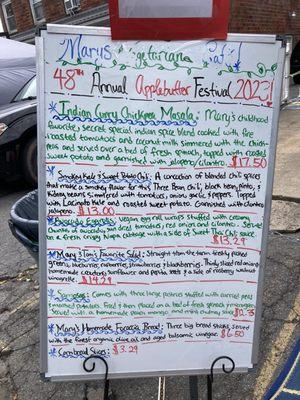 Mary's Vegetarian
48th Annual Applebutter Festival 2023!
Indian Curry Chickpea Masala: Mary's childhood
favorite, secret special indian spice blend cooked with fire
roasted tomatoes and coconut milk simmered with the chick
peas and served over a bed of fresh spinach, topped with roasted
sweet potato and garnished with jalapeno/cilantro. $17.50
Smokey Kale & Sweet Potato Chili: A concoction of blended chili spices
that make a smokey flavor for this three bean chili, black bean, pinto, &
kidney beans simmered with tomatoes, onions, garlic & peppers. Topped
with Lacinato Kale and roasted sweet potato. Garnished with cilantro
jalapeno. $13.00
Avocado Eggrolls: vegan egg roll wraps stuffed with creamy
avocado, sun dried tomatoes, red onion and cilantro. Served
on a fresh crispy Napa cabbage with a side of Sweet Thai Chili sauce
$13.29
Mary & Tom's Favorite Salad: Straight from the farm freshly picked
greens, cucumbers, strawberries & blackberries. Thinly sliced red onion,
homemade croutons, sunflower and pepita seeds & a side of raspberry walnut
vinaigrette. $14.29
Samosas: Comes with three large potatoes stuffed with curried peas
Fried & then placed on a bed of fresh spinach
Served with a homemade mango and mint chutney sauce
Mary's Homemade Focaccia Bread: Three big bread sticks, served
with the finest organic olive oil and aged balsamic vinegar. $6.50
Cornbread Slices: $3.29